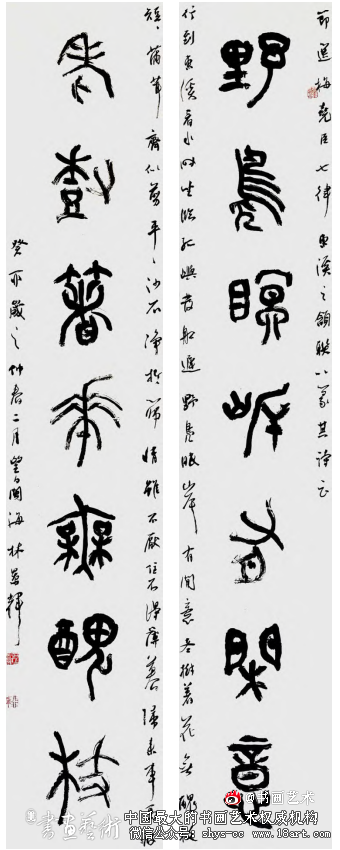 節選梅堯臣七律東溪之頷聯以篆其詩云
野鳧眠岸有閒意
行到東溪看水時坐臨孤嶼發船遲野鳧眠岸有閒意老樹著花無醜枝
短短蒲茸齊似剪平平沙石淨於篩情雖不厭住不得薄暮歸來車馬疲
老樹著花無醜枝
癸卯歲之仲春二月望日閩海林
@书画艺术
書画藝術
中国最大的书画艺术权威机构
微信公众号：shys-cc www.18art.com